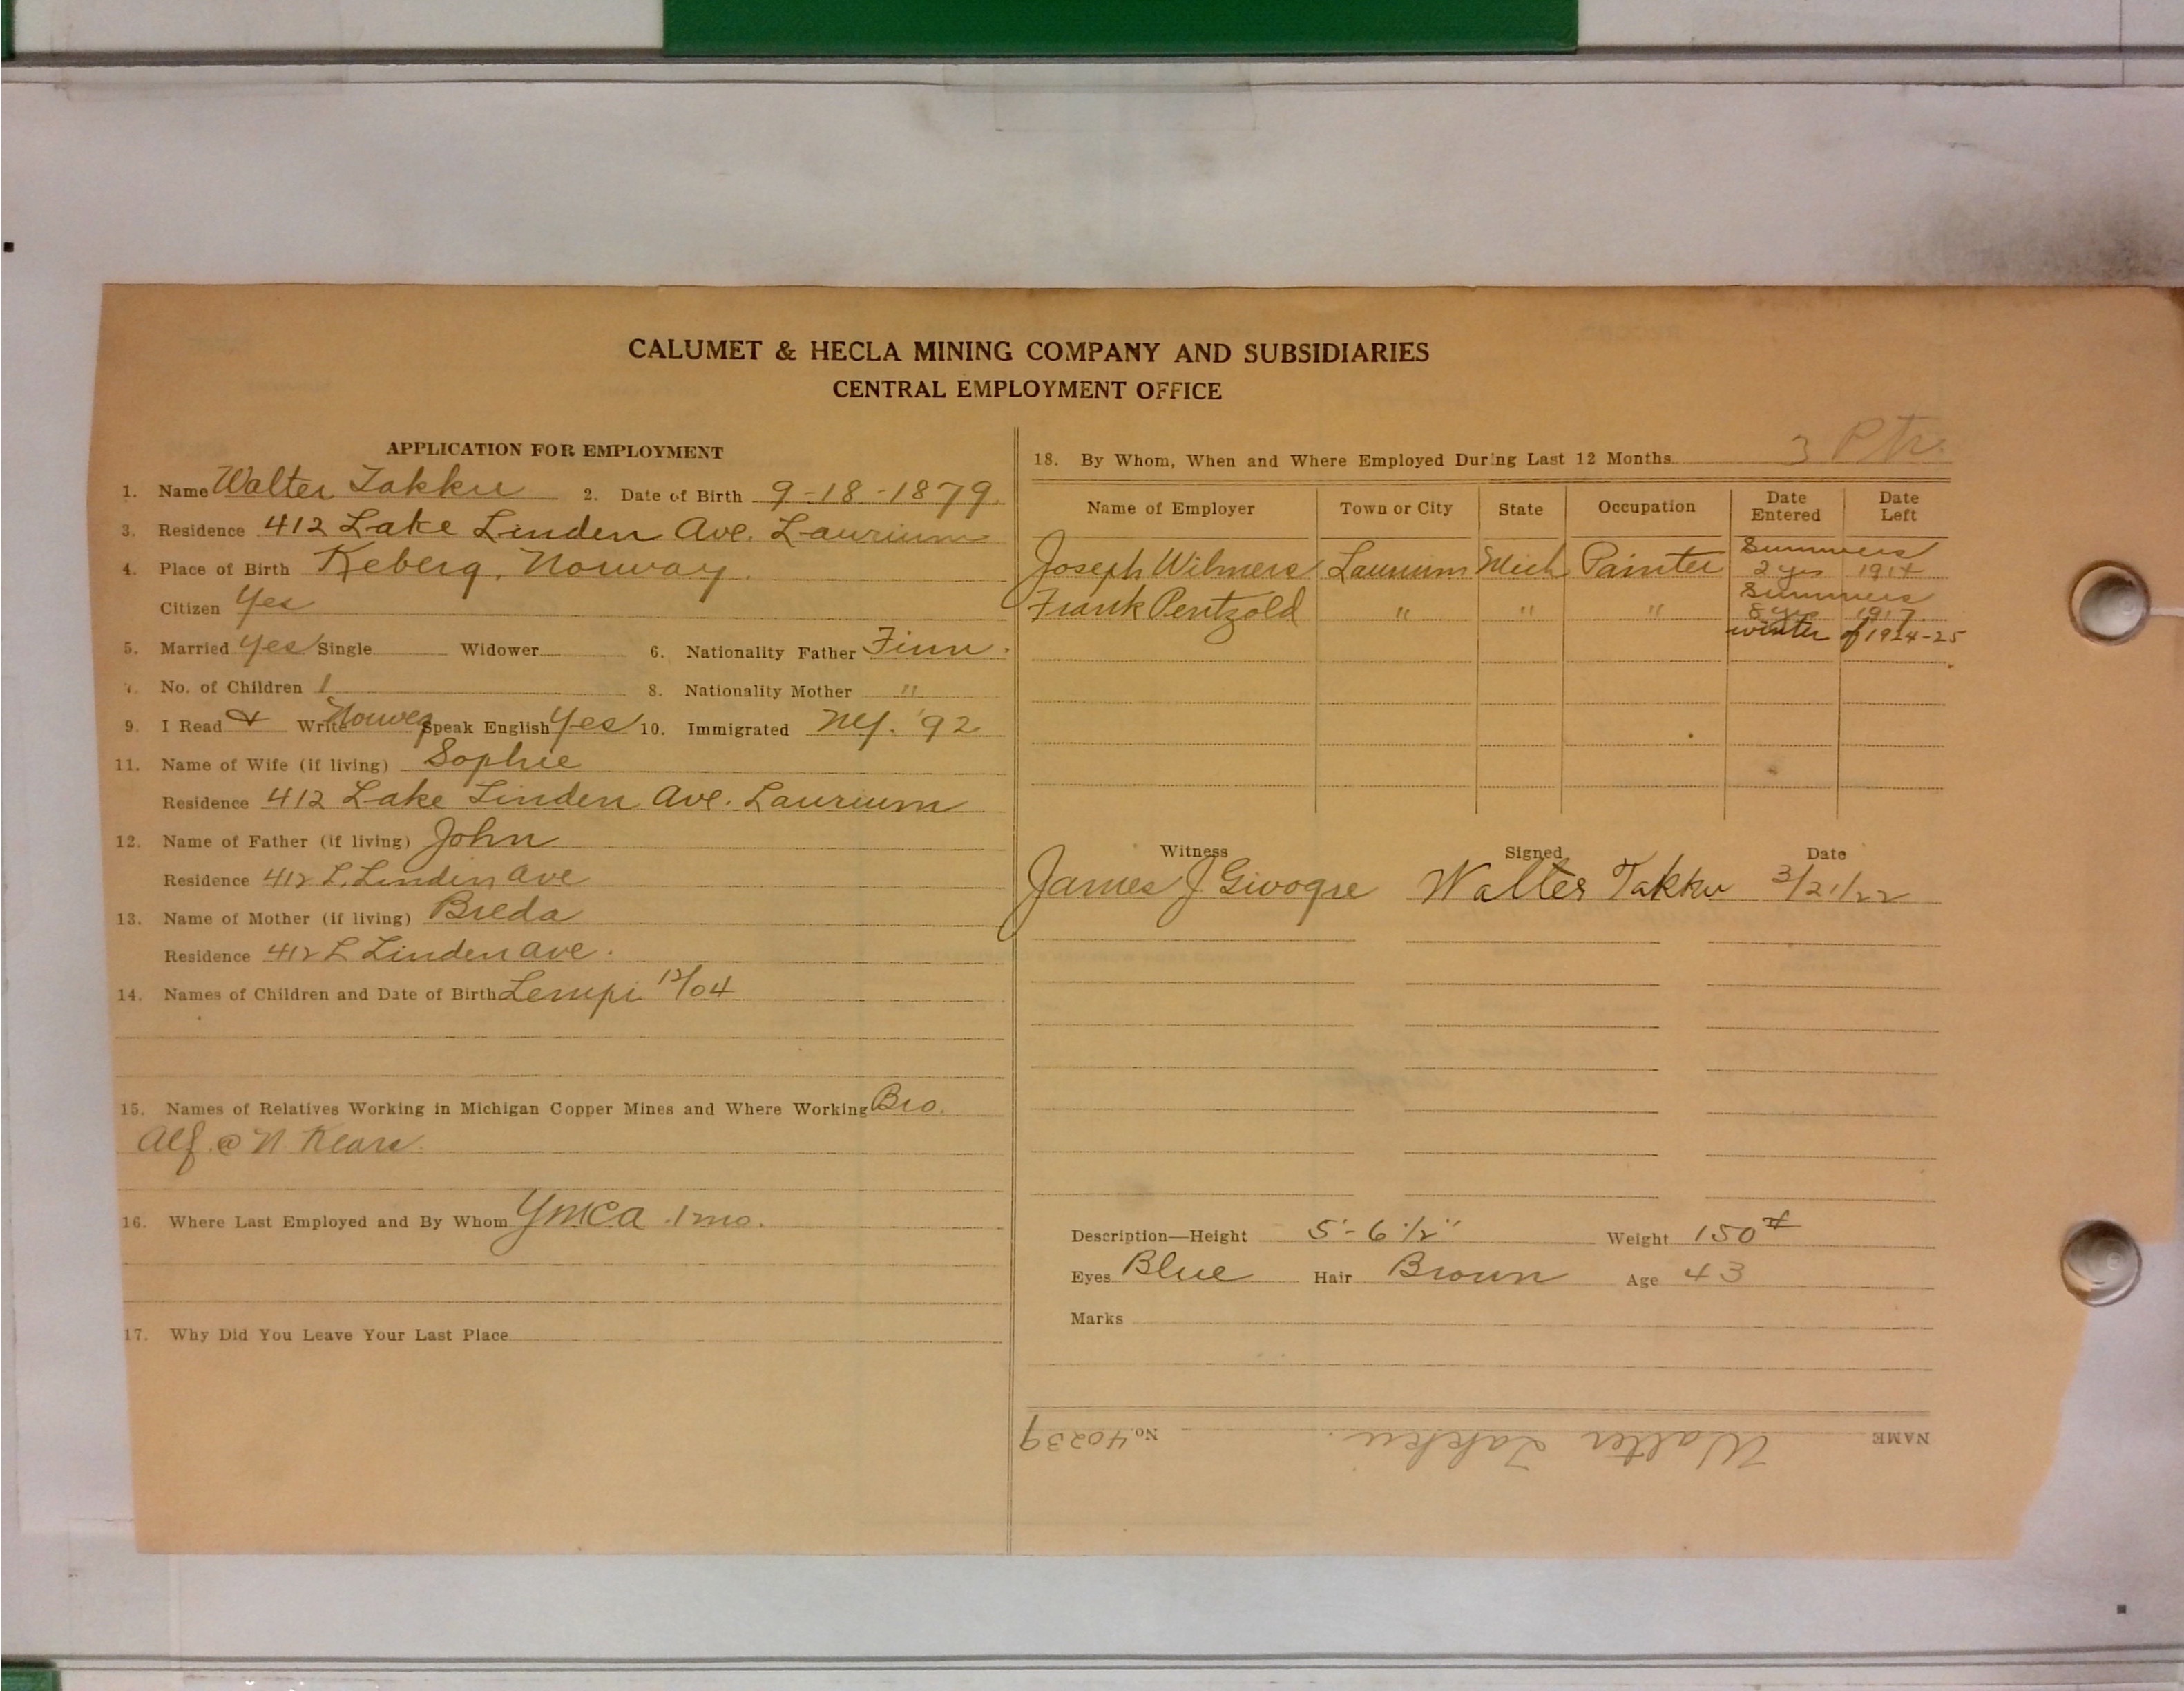 CALUMET & HECLA MINING COMPANY AND SUBSIDIARIES
CENTRAL EMPLOYMENT OFFICE
APPLICATION FOR EMPLOYMENT
1. Name Walter Takku 2. Date of Birth 9-18-1879
3. Residence 412 Lake Linden Ave. Laurium
4. Place of Birth Keberg, Norway.
Citizen Yes
5. Married Yes Single Widower 6. Nationality Father Finn.
7. No. of Children 1 8. Nationality Mother "
9. I Read & Write Norweg Speak English Yes 10. Immigrated NY. '92
11. Name of Wife (if living) Sophie
Residence 412 Lake Linden Ave. Laurium
12. Name of Father (if living) John
Residence 412 L. Linden Ave
13. Name of Mother (if living) Breda
Residence 412 L Linden Ave.
14. Names of Children and Date of Birth Lempi 12/04
15. Names of Relatives Working in Michigan Copper Mines and Where Working Bro.
Alf. @ N. Kears.
16. Where Last Employed and By Whom YMCA. 1 mo.
17. Why Did You Leave Your Last Place
3 Ptr.
18. By Whom, When and Where Employed During Last 12 Months
Name of Employer Town or City State Occupation Date Entered Date Left
Summers
Joseph Wilmers Laurium Mich Painter 2 yrs 1914
Summers
Frank Pentzold " " " 8 yrs 1917
winter of 1924-25
Witness Signed Date
James J Walter Takku 3/21/22
Description—Height 5'-6 1/2" Weight 150#
Eyes Blue Hair Brown Age 43
Marks
NAME Walter Takku. No. 40239